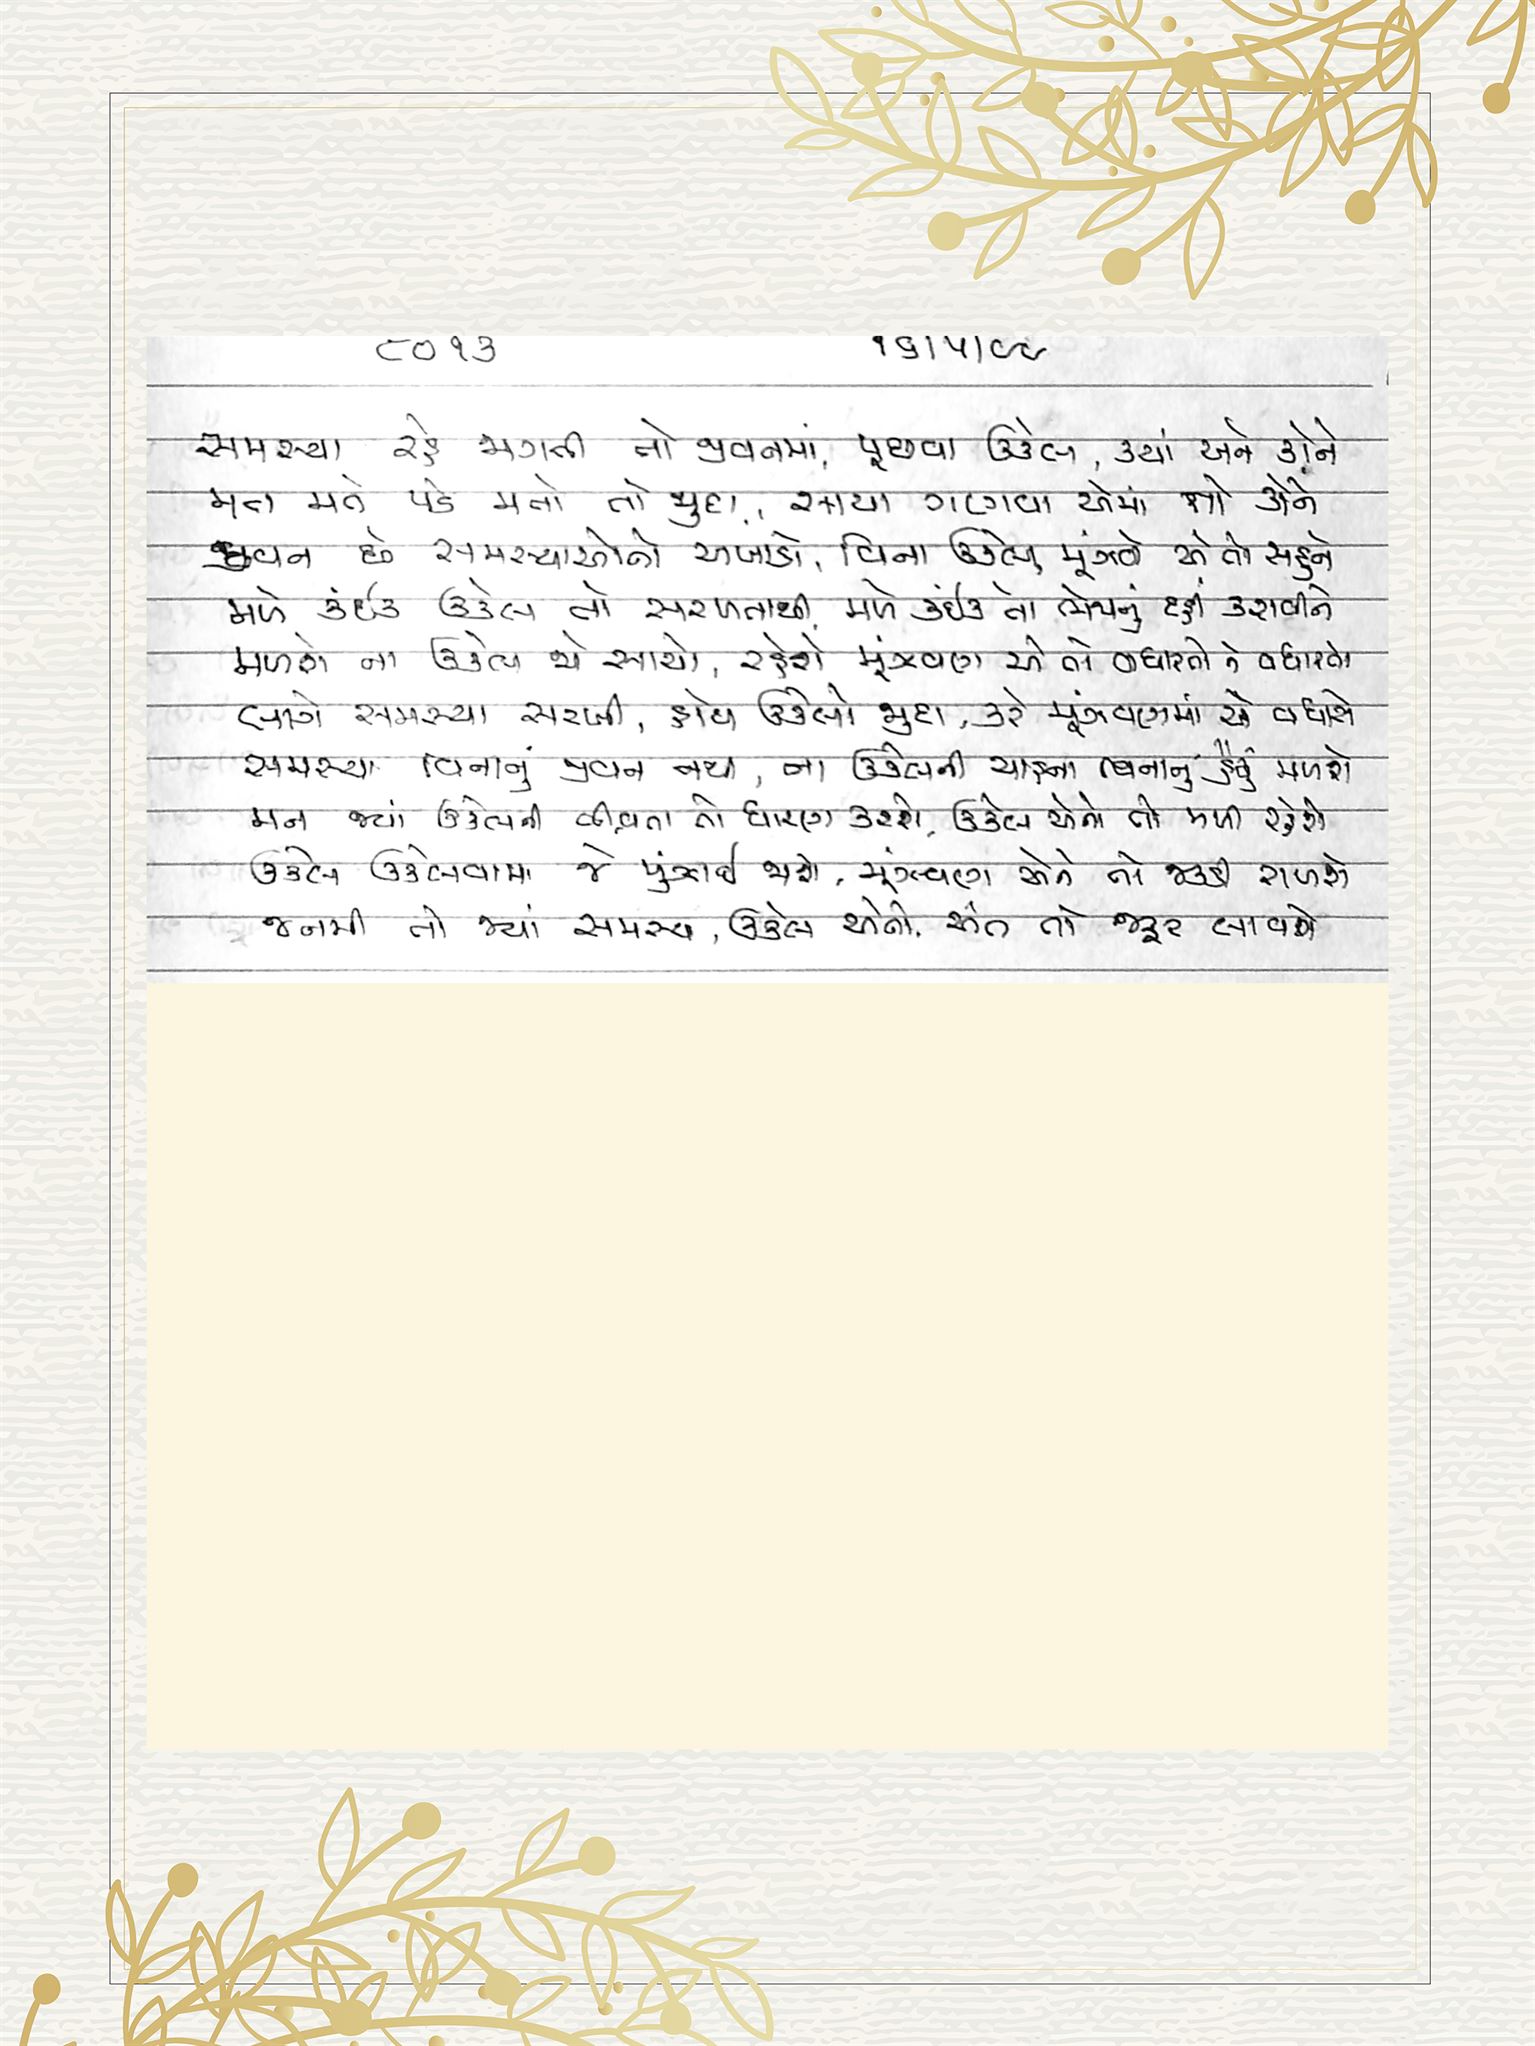 ૮૦૧૩ ૧૬/૫/૯૯
સમસ્યા રહે જાગતી તો જીવનમાં, પૂછવા ઉકેલ, ક્યાં અને કોને
મત મતે પડે મતો તો જુદા, સાચા ગણવા એમાં તો કોને
જીવન છે સમસ્યાઓનો અખાડો, વિના ઉકેલ મૂંઝવે એ તો સહુને
મળે કંઈક ઉકેલ તો સરળતાથી, મળે કંઈક તો લોચનું દહીં કરાવીને
મળશે ના ઉકેલ જો સાચો, રહેશે મૂંઝવણ એ તો વધારતો ને વધારતો
લાગે સમસ્યા સરખી, હોય ઉકેલો જુદા, કરે મૂંઝવણમાં એ વધારો
સમસ્યા વિનાનું જીવન નથી, ના ઉકેલની ચાહના વિનાનું હૈયું મળશે
મન જ્યાં ઉકેલની તીવ્રતા તો ધારણ કરશે, ઉકેલ એનો તો મળી રહેશે
ઉકેલ ઉકેલવામાં જે મૂંઝાઈ જાશે, મૂંઝવણ એને તો જકડી રાખશે
જનમી તો જ્યાં સમસ્યા, ઉકેલ એનો અંત તો જરૂર લાવશે